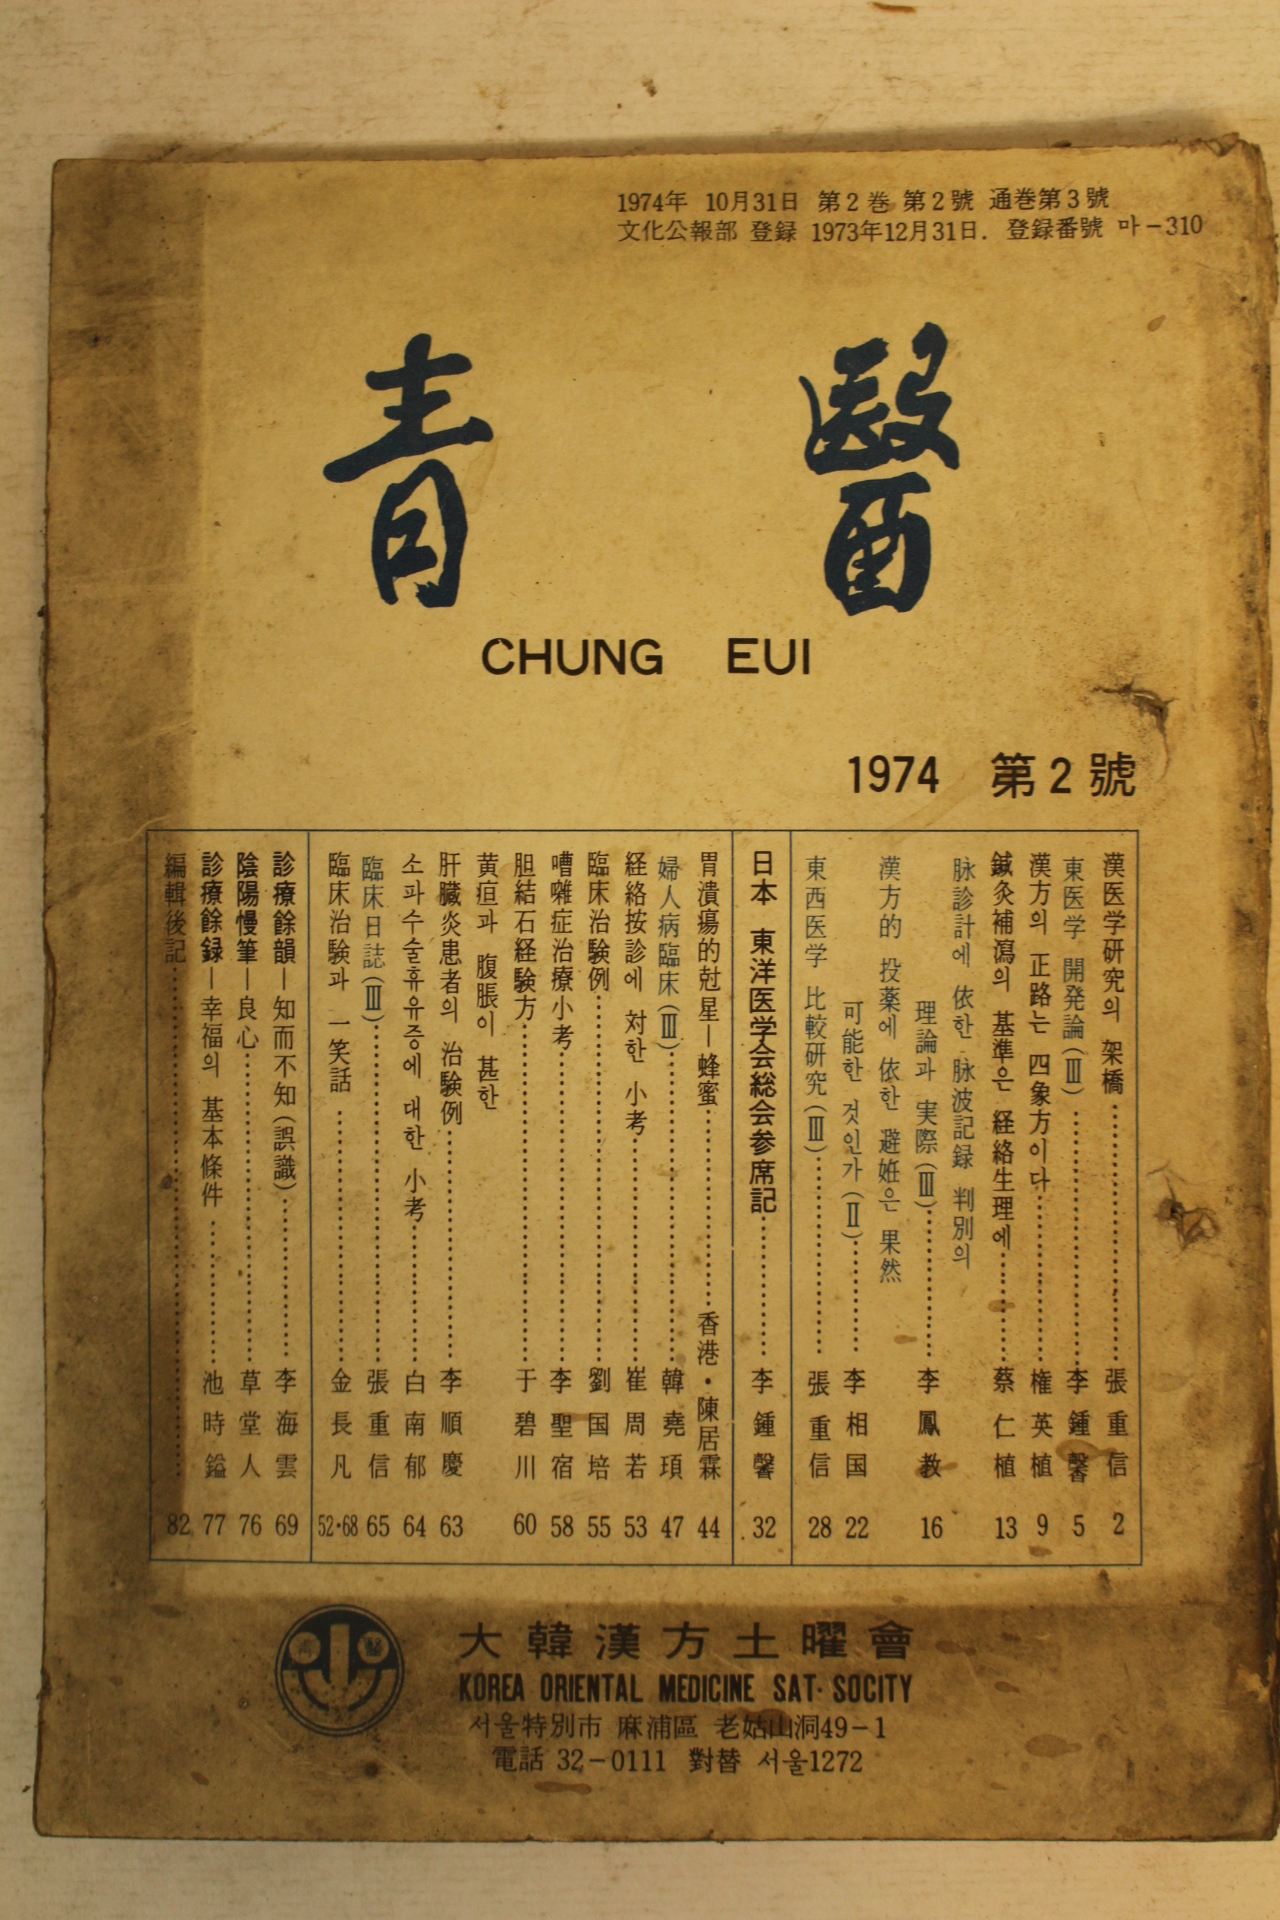 1974年 10月31日 第2巻 第2號 通巻第3號
文化公報部 登録 1973年12月31日. 登録番號 마-310
青 醫
CHUNG EUI
1974 第2號
漢医学研究의 架橋……………張重信 2
東医学 開発論(Ⅲ)……………李鍾馨 5
漢方의 正路는 四象方이다……………権英植 9
鍼灸補瀉의 基準은 経絡生理에……………蔡仁植 13
脉診計에 依한 脉波記録 判別의
理論과 実際(Ⅲ)……………李鳳教 16
漢方的 投薬에 依한 避姙은 果然
可能한 것인가(Ⅱ)……………李相国 22
東西医学 比較研究(Ⅲ)……………張重信 28
日本 東洋医学会総会参席記……………李鍾馨 32
胃潰瘍的尅星—蜂蜜……………香港・陳居霖 44
婦人病臨床(Ⅲ)……………韓堯頊 47
経絡按診에 対한 小考……………崔周若 53
臨床治験例……………劉国培 55
嘈囃症治療小考……………李聖宿 58
胆結石経験方……………于碧川 60
黄疸과 腹脹이 甚한
肝臓炎患者의 治験例……………李順慶 63
소파수술휴유증에 대한 小考……………白南郁 64
臨床日誌(Ⅲ)……………張重信 65
臨床治験과 一笑話……………金長凡 52・68
診療餘韻—知而不知(誤識)……………李海雲 69
陰陽慢筆—良心……………草堂人 76
診療餘録—幸福의 基本條件……………池時鎰 77
編輯後記……………82
青 醫
大韓漢方土曜會
KOREA ORIENTAL MEDICINE SAT· SOCITY
서울特別市 麻浦區 老姑山洞49-1
電話 32-0111 對替 서울1272